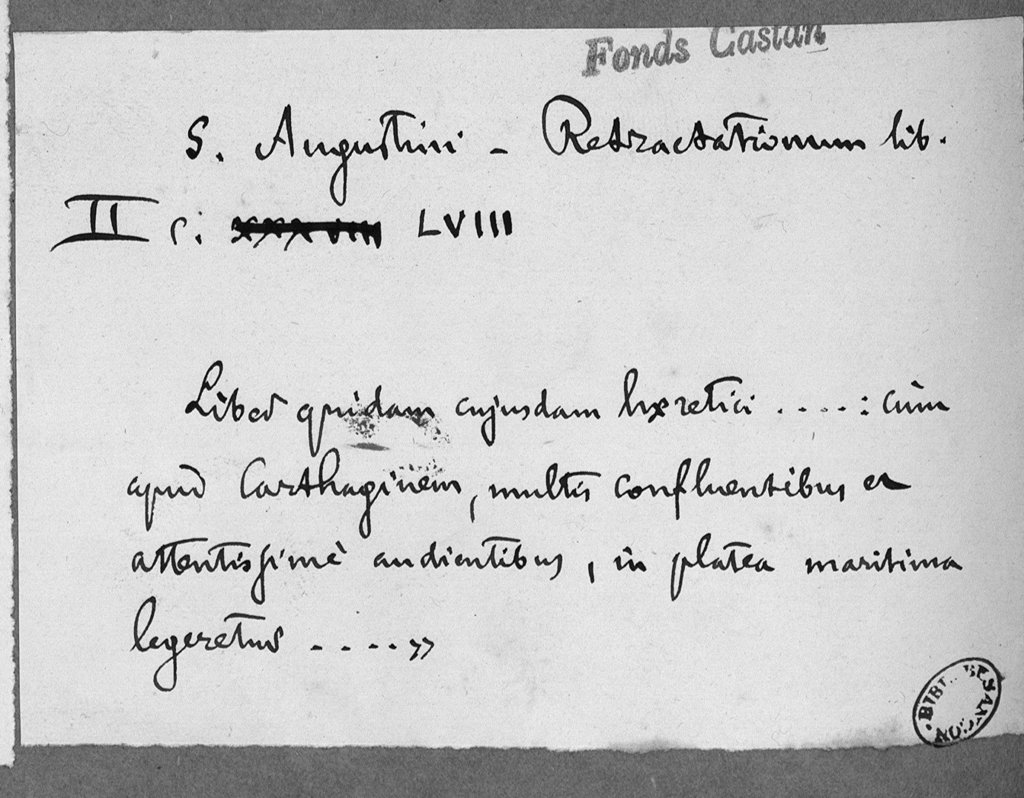 Fonds Castan
S. Augustini - Retractationum lib.
II c. XXXVIII LVIII
Liber quidam cujusdam hæretici ....: cùm
apud Carthaginem, multis confluentibus et
attentissimè audientibus, in platea maritima
legeretur ....»
BIBL. BESANÇON